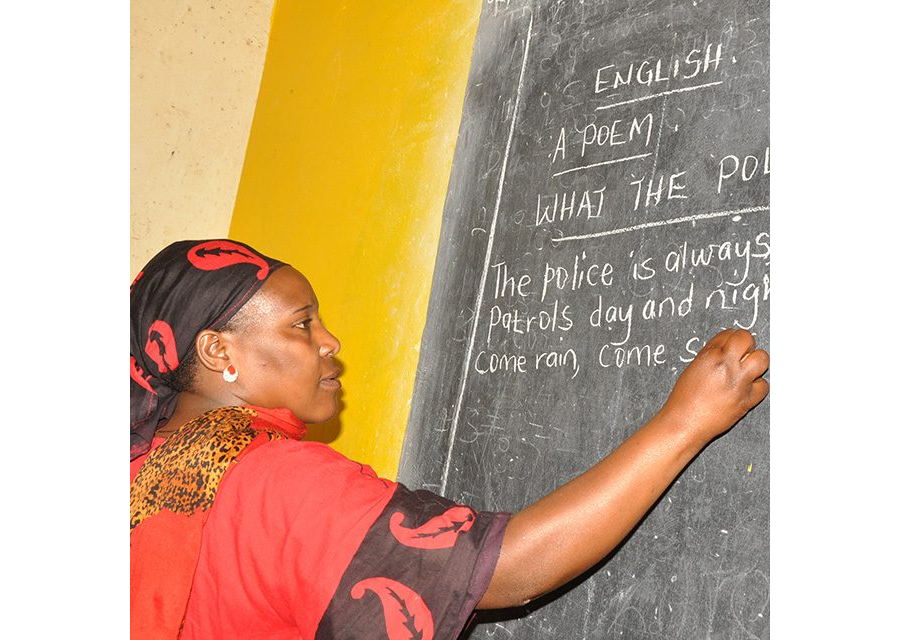 ENGLISH.
A POEM.
WHAT THE POL
The police is always
Patrols day and nigh
Come rain, come s